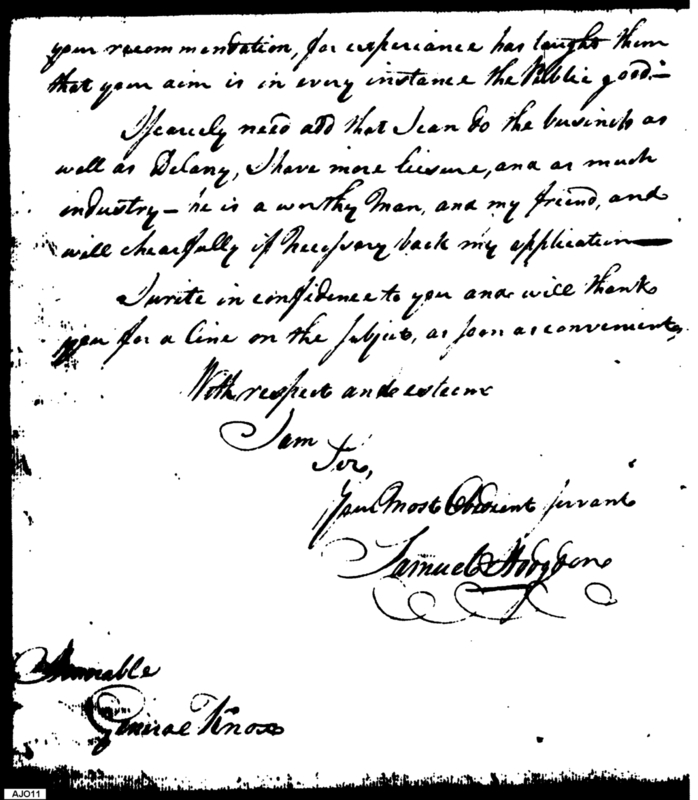 your recommendation, for experiance has taught them
that your aim is in every instance the Public good.—
I scarcely need add that I can do the business as
well as Delany, I have more liesure, and as much
industry— he is a worthy Man, and my friend, and
will chearfully if Necessary back my application—
I write in confidence to you and will thank
you for a line on the subject, as soon as convenient,
With respect and esteem
I am
Sir,
Your Most Obedient servant
Samuel Hodgdon
Honorable
General Knox
AJO11